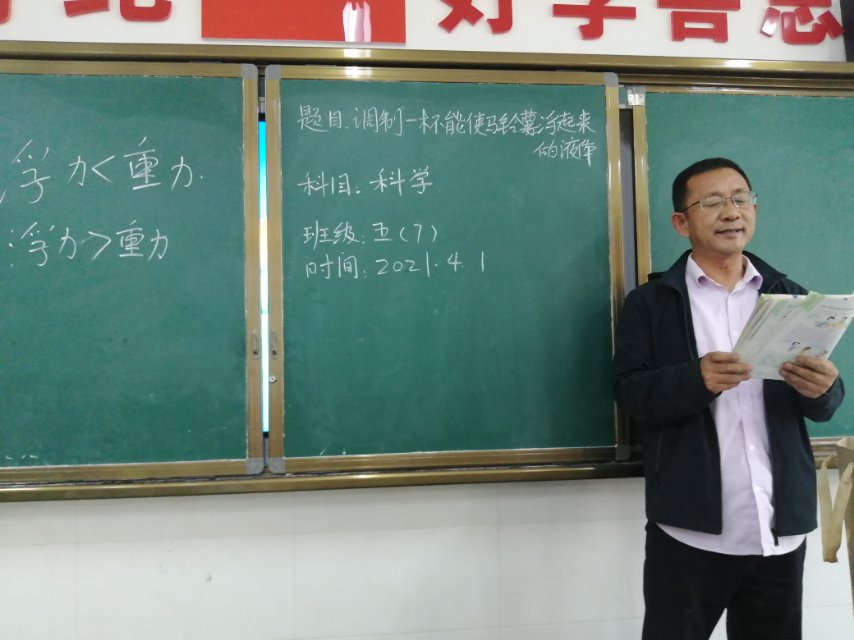 好学善思
浮力<重力.
浮力>重力
题目:调制一杯能使马铃薯浮起来
的液体
科目:科学
班级:五(7)
时间:2021.4.1